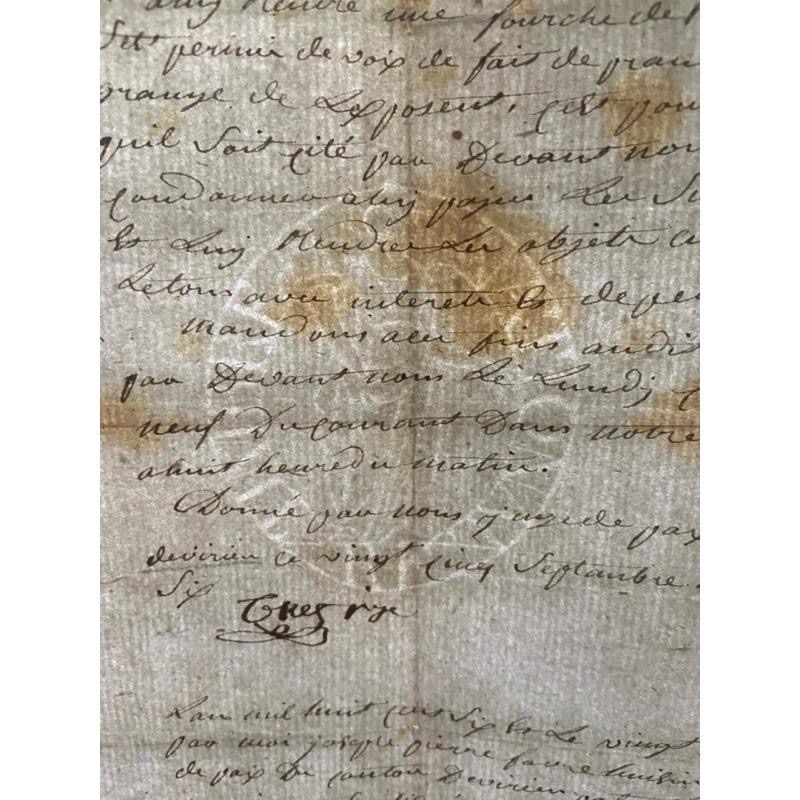 une fourche de
permis de voix de fait de
grange de Lexposent, cest pour
quil soit cité par Devant nou
condamné a luy payer Les
et Luy Rendre Les objets
Letout avec interets et depe
mandons aux fins audit
par Devant nous Le Lundy
neuf Ducourant Dans notre
ahuit heure du matin.
Donné par nous juge de paix
devirieu ce vingt cinq Septambre
Six
juge
Lan mil huit cent Six et Le vingt
par moi joseph pierre favre huissi
de paix Du canton Devirieu